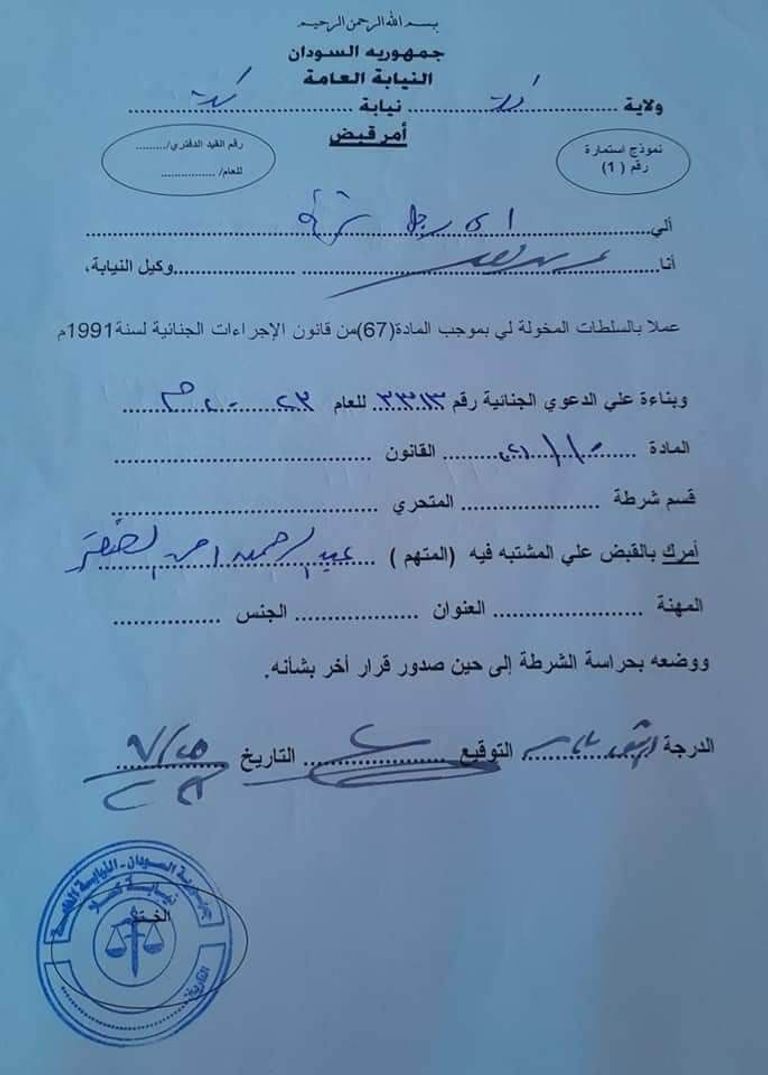 بسم الله الرحمن الرحيم
جمهوريه السودان
النيابة العامة
ولاية ........ نيابة ........
أمر قبض
نموذج استمارة
رقم (1)
رقم القيد الدفتري/.........
للعام/ ...............
ألي........ اى رجل شرطة ........
أنا........ ........وكيل النيابة،
عملا بالسلطات المخولة لي بموجب المادة(67)من قانون الإجراءات الجنائية لسنة1991م
وبناءة علي الدعوي الجنائية رقم ٣٣١٣ للعام ٢٠٢٣م
المادة ........ القانون ........
قسم شرطة ........ المتحري ........
أمرك بالقبض علي المشتبه فيه (المتهم ) عبدالرحمن
المهنة ........ العنوان ........ الجنس ........
ووضعه بحراسة الشرطة إلى حين صدور قرار أخر بشأنه.
الدرجة ........ التوقيع ........ التاريخ ........
جمهورية السودان - النيابة العامة
نيابة كسلا
الختم
التاريخ